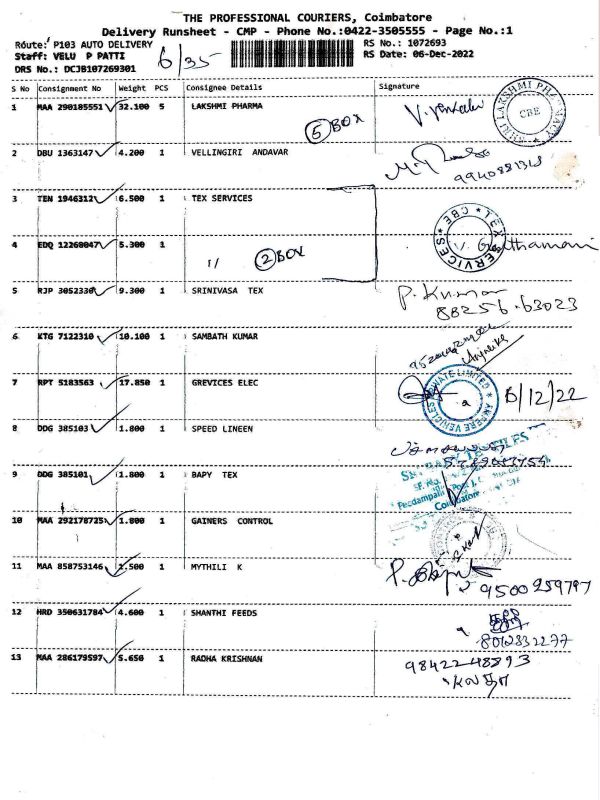 THE PROFESSIONAL COURIERS, Coimbatore
Delivery Runsheet - CMP - Phone No.:0422-3505555 - Page No.:1
Route: P103 AUTO DELIVERY RS No.: 1072693
Staff: VELU P PATTI 6/35 RS Date: 06-Dec-2022
DRS No.: DCJB107269301
S No Consignment No Weight PCS Consignee Details Signature
1 MAA 290185551 32.100 5 LAKSHMI PHARMA
5 BOX CBE
2 DBU 1363147 4.200 1 VELLINGIRI ANDAVAR
3 TEN 1946312 6.500 1 TEX SERVICES
TEX SERVICES * CBE *
4 EDQ 12260047 5.300 1 " 2 BOX
5 RJP 3052330 9.300 1 SRINIVASA TEX P. Kumar
88256.63023
6 KTG 7122310 10.100 1 SAMBATH KUMAR
7 RPT 5183563 17.850 1 GREVICES ELEC 6/12/22
AMPERE VEHICLES PRIVATE LIMITED
8 DDG 385103 1.800 1 SPEED LINEEN
9 DDG 385101 1.800 1 BAPY TEX
10 MAA 292178725 1.800 1 GAINERS CONTROL
11 MAA 858753146 1.500 1 MYTHILI K
9500259797
12 HRD 350631784 4.600 1 SHANTHI FEEDS
8012832277
13 MAA 286179597 5.650 1 RADHA KRISHNAN 9842248893